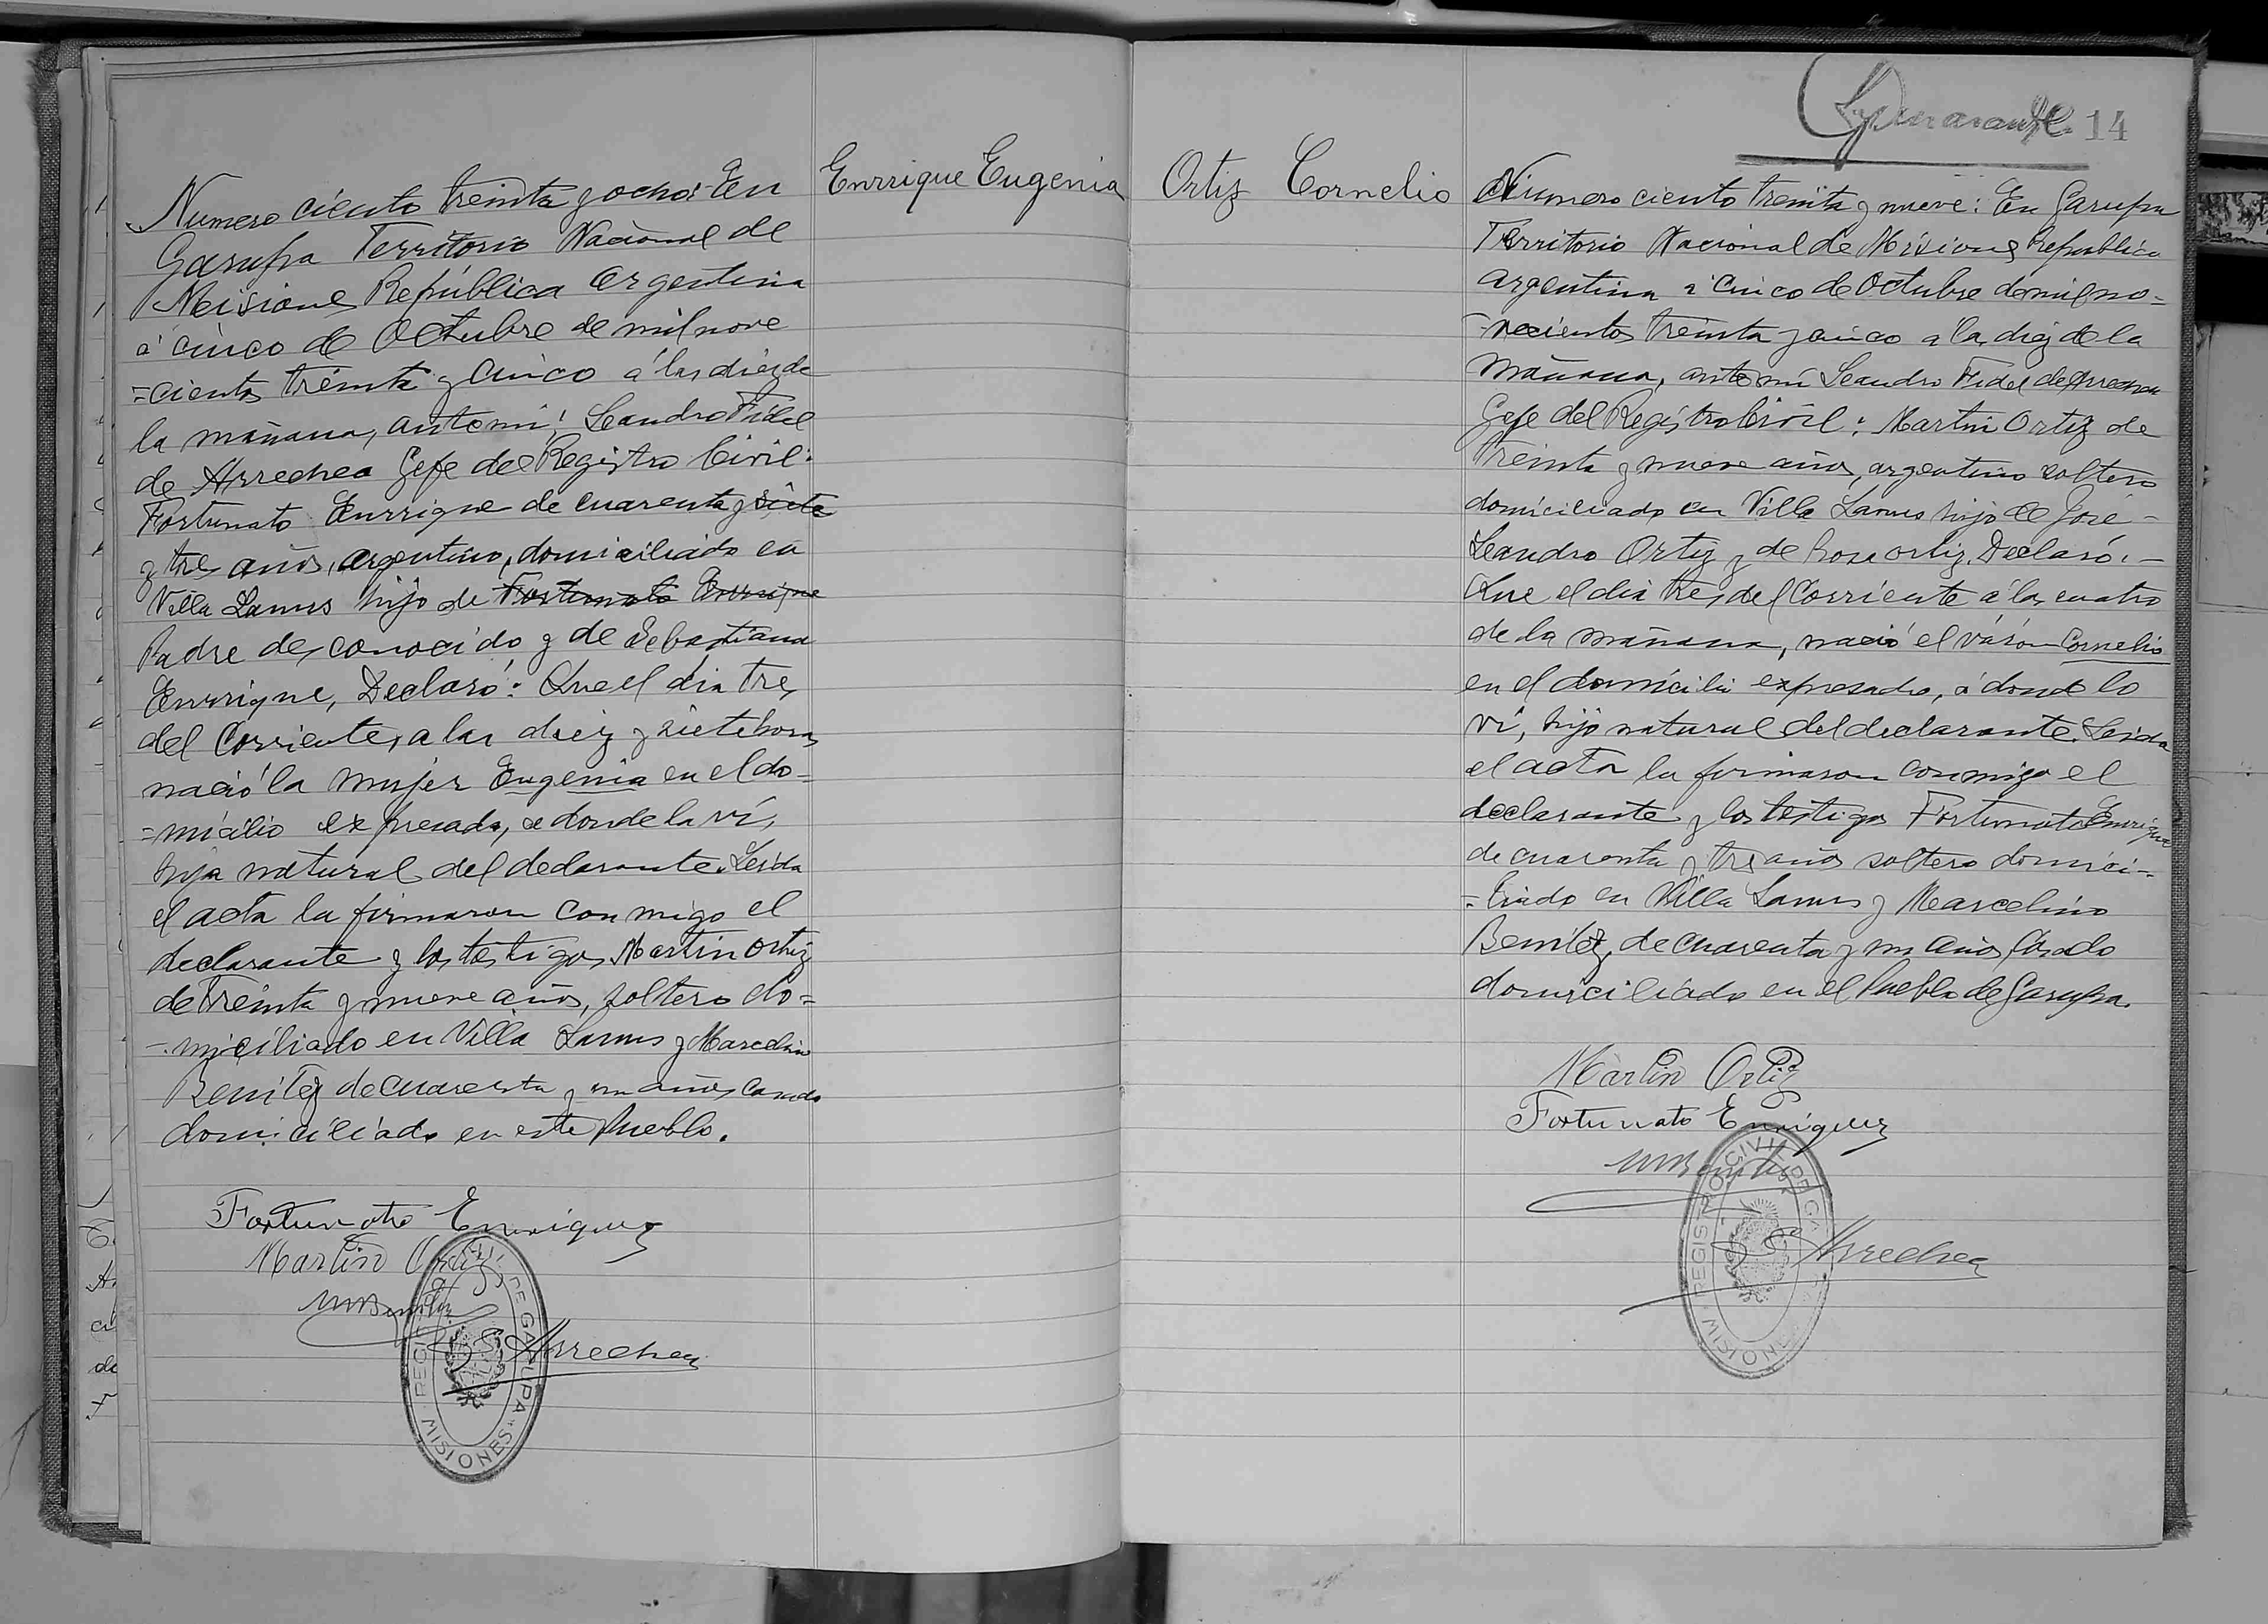 Enrrique Eugenia
Numero ciento treinta y ocho: En
Garupa Territorio Nacional de
Misiones República Argentina
á cinco de Octubre de mil nove
=cientos treinta y cinco á las diez de
la mañana, ante mi: Leandro Fidel
de Arrechea Gefe del Registro Civil:
Fortunato Enrrique de cuarenta y siete
y tres años, argentino, domiciliado en
Villa Lanus hijo de Fortunato Enrrique
Padre desconocido y de Sebastiana
Enrrique, Declaró: Que el dia tres
del Corriente, a las diez y siete horas
nació la mujer Eugenia en el do=
=micilio expresado, a donde la ví,
hija natural del declarante. Leida
el acta la firmaron conmigo el
declarante y los testigos Martin Ortiz
de treinta y nueve años, soltero do=
=miciliado en Villa Lanus y Marcelino
Benitez de cuarenta y un años casado
domiciliado en este Pueblo.
Fortunato Enriquez
Martin Ortiz
MBenitez
Arrechea
REGISTRO CIVIL DE GARUPA
MISIONES
14
Ortiz Cornelio
Numero ciento treinta y nueve: En Garupa
Territorio Nacional de Misiones República
Argentina á cinco de Octubre de mil no=
=vecientos treinta y cinco a las diez de la
mañana, ante mí Leandro Fidel de Arrechea
Gefe del Registro Civil: Martin Ortiz de
treinta y nueve años, argentino soltero
domiciliado en Villa Lanus hijo de José
Leandro Ortiz y de Rosa Ortiz. Declaró:—
Que el dia tres del Corriente á las cuatro
de la mañana, nació el varón Cornelio
en el domicilio expresado, á donde lo
ví, hijo natural del declarante. Leida
el acta la firmaron conmigo el
declarante y los testigos Fortunato Enrrique
de cuarenta y tres años soltero domici=
=liado en Villa Lanus y Marcelino
Benitez, de cuarenta y un años casado
domiciliado en el Pueblo de Garupa.
Martin Ortiz
Fortunato Enriquez
MBenitez
Arrechea
REGISTRO CIVIL DE GA
MISION